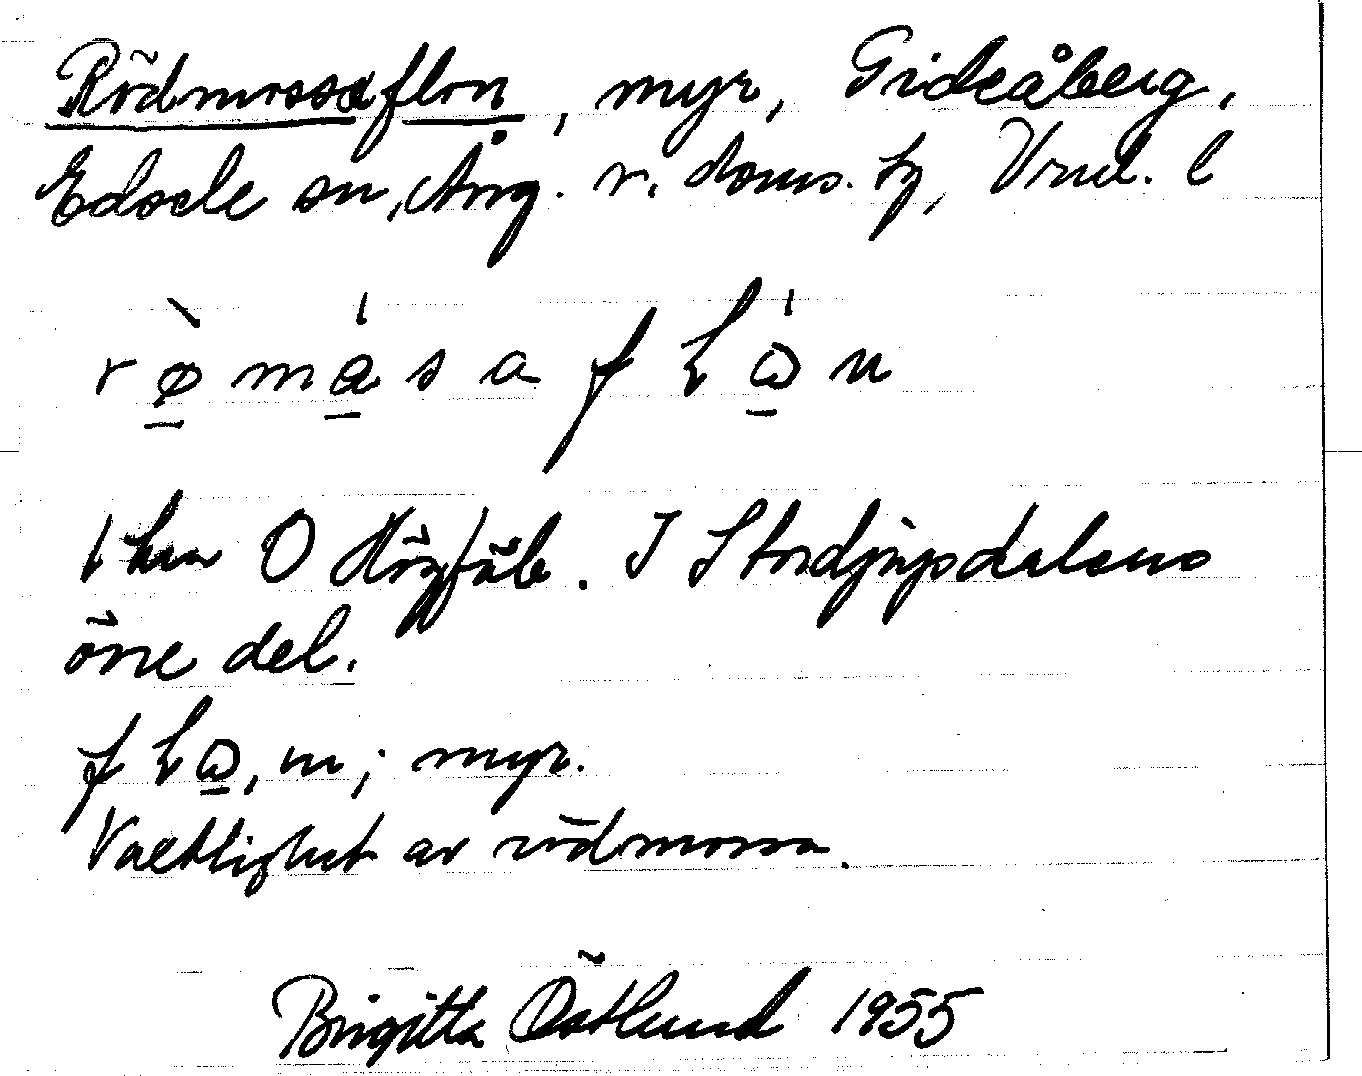 Rödmossaflon, myr, Gideåberg,
Edsele sn, Ång. v. doms. tg, Vnd. l
røMasafLωn
1 km O Högfäb. I Stordjupdalens
övre del.
fLω, m; myr.
Växtlighet av rödmossa.
Birgitta Östlund 1955